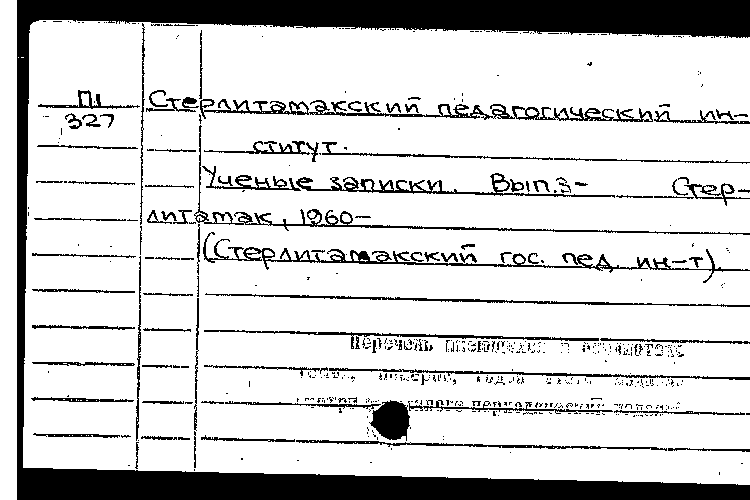 П1
327
Стерлитамакский педагогический ин-
ститут.
Ученые записки. Вып.3- Стер-
литамак, 1960-
(Стерлитамакский гос. пед. ин-т).
Перечень имеющихся в